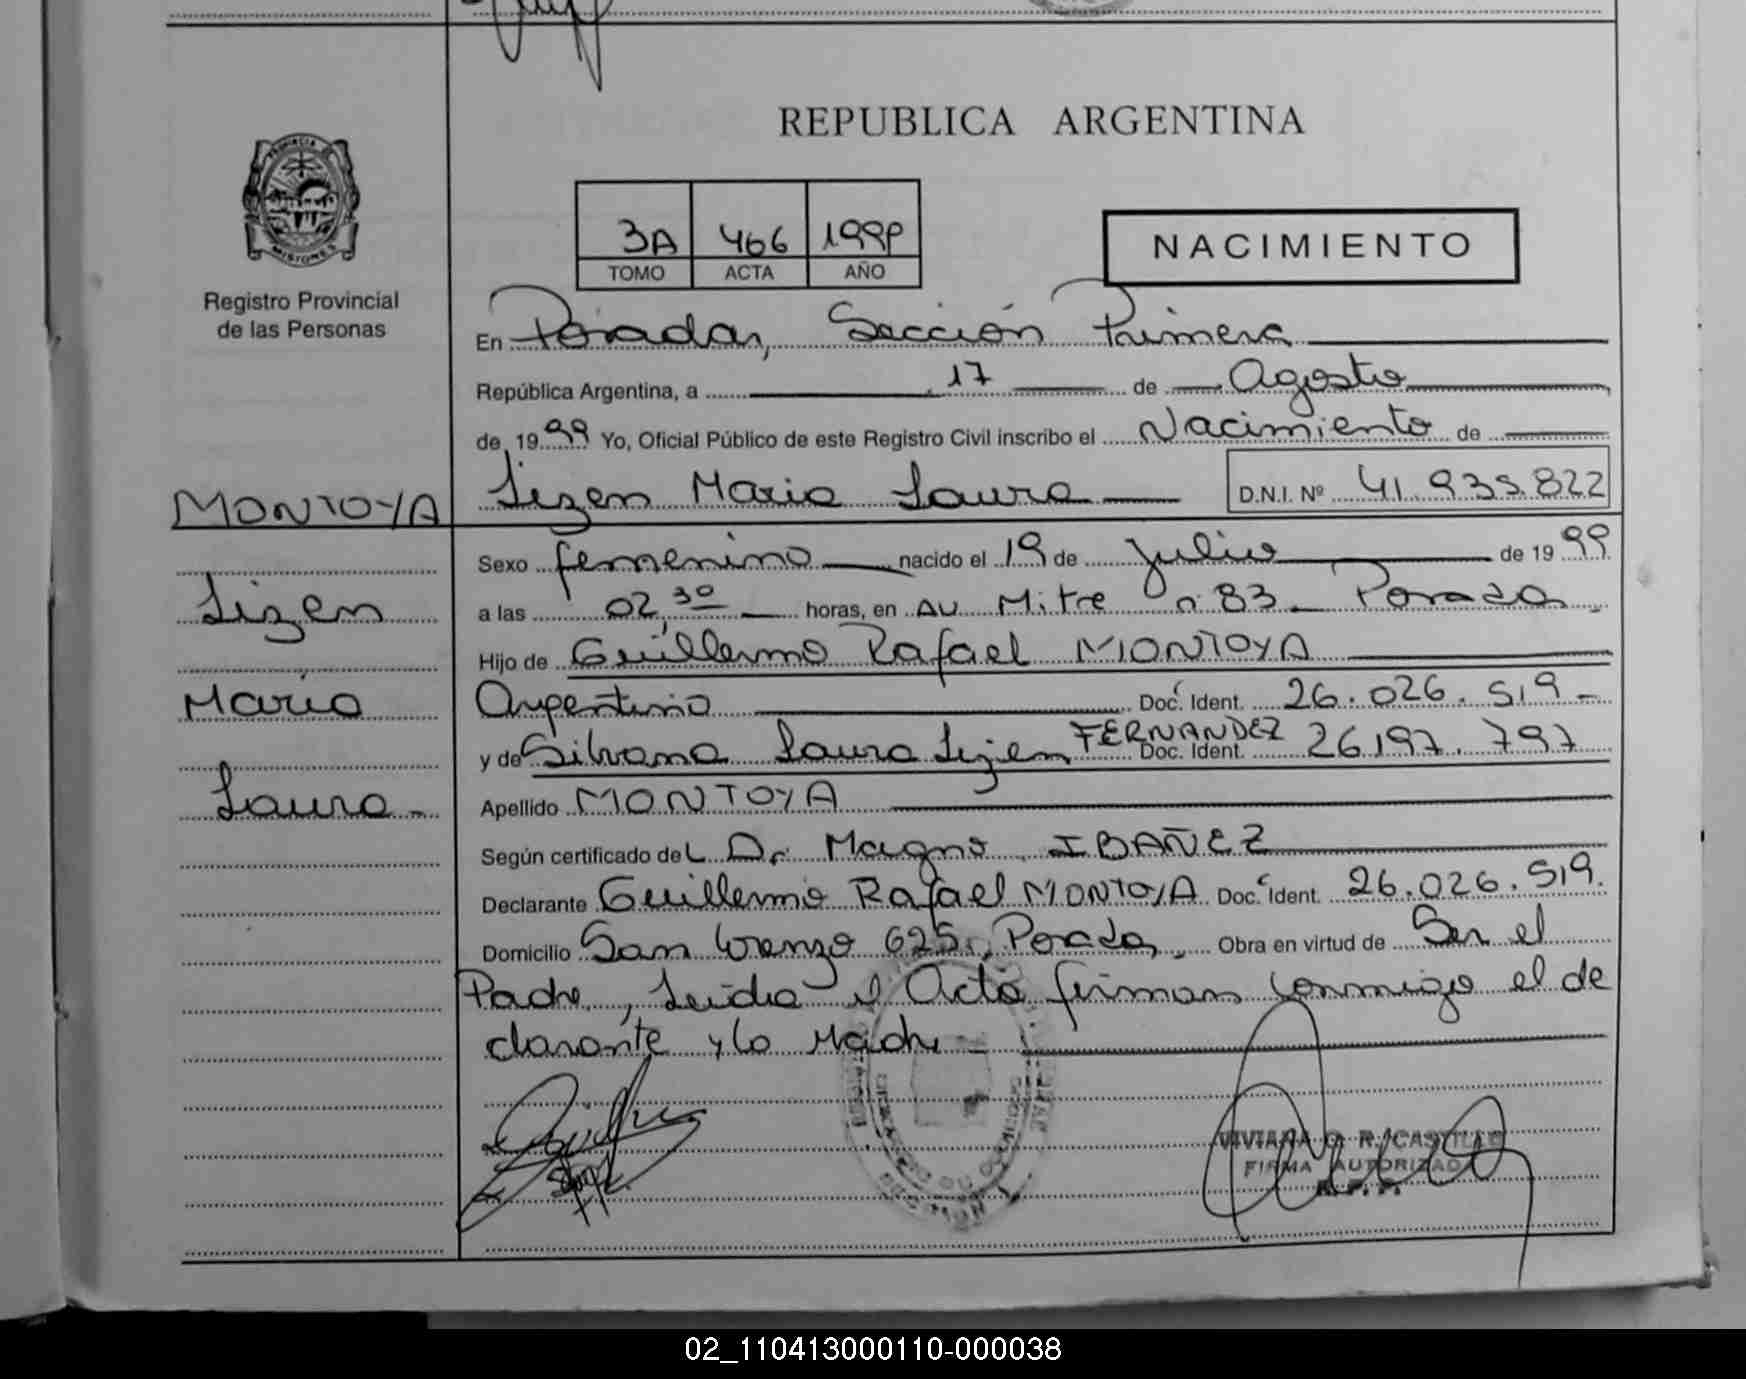 REPUBLICA ARGENTINA
PROVINCIA DE
MISIONES
Registro Provincial
de las Personas
3A 466 1999
TOMO ACTA AÑO
NACIMIENTO
En Posadas, Sección Primera
República Argentina, a 17 de Agosto
de 1999 Yo, Oficial Público de este Registro Civil inscribo el Nacimiento de
MONTOYA
Lizen Maria Laura D.N.I. Nº 41.935.822
Sexo femenino nacido el 19 de Julio de 1999
Lizen
a las 02,30 horas, en AV Mitre n 83 Posadas
Hijo de Guillermo Rafael MONTOYA
Maria
Argentino Doc. Ident. 26.026.519-
y de Silvana Laura Lizen FERNANDEZ Doc. Ident. 26.197.797
Laura-
Apellido MONTOYA
Según certificado del Dr Magno IBAÑEZ
Declarante Guillermo Rafael MONTOYA Doc. Ident. 26.026.519.
Domicilio San Lorenzo 625, Posadas, Obra en virtud de Ser el
Padre, Leida el Acta firman conmigo el de
clarante y la Madre
VIVIANA R. CASTILLO
FIRMA AUTORIZADA
02_110413000110-000038